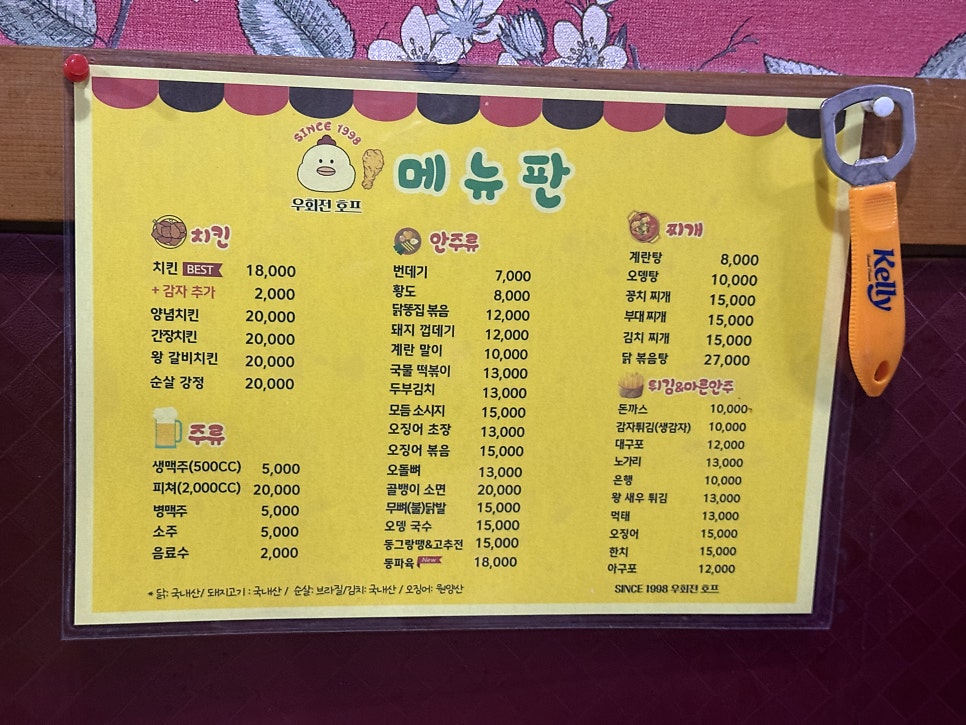 SINCE 1998
우화전 호프
메뉴판
치킨
치킨 BEST 18,000
+ 감자 추가 2,000
양념치킨 20,000
간장치킨 20,000
왕 갈비치킨 20,000
순살 강정 20,000
주류
생맥주(500CC) 5,000
피쳐(2,000CC) 20,000
병맥주 5,000
소주 5,000
음료수 2,000
안주류
번데기 7,000
황도 8,000
닭똥집 볶음 12,000
돼지 껍데기 12,000
계란 말이 10,000
국물 떡볶이 13,000
두부김치 13,000
모듬 소시지 15,000
오징어 초장 13,000
오징어 볶음 15,000
오돌뼈 13,000
골뱅이 소면 20,000
무뼈(불)닭발 15,000
오뎅 국수 15,000
동그랑땡&고추전 15,000
동파육 New 18,000
찌개
계란탕 8,000
오뎅탕 10,000
꽁치 찌개 15,000
부대 찌개 15,000
김치 찌개 15,000
닭 볶음탕 27,000
튀김&마른안주
돈까스 10,000
감자튀김(생감자) 10,000
대구포 12,000
노가리 13,000
은행 10,000
왕 새우 튀김 13,000
먹태 13,000
오징어 15,000
한치 15,000
아구포 12,000
* 닭: 국내산/ 돼지고기 : 국내산 / 순살: 브라질/김치: 국내산 / 오징어: 원양산
SINCE 1998 우화전 호프
Kelly